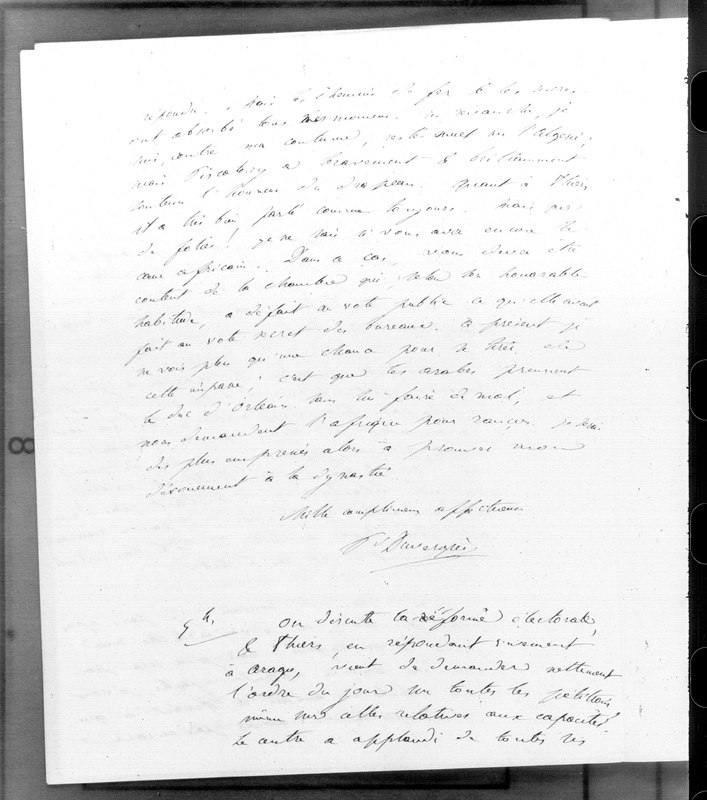 répondu. Mais les chemins de fer & les sucres
ont absorbé tous mes momens. En revanche, je
suis, contre ma coutume, resté muet sur l'Algérie;
mais Piscatory a bravement & brillamment
soutenu l'honneur du drapeau. Quant à Thiers
il a très bien parlé comme toujours. Mais que
de folies! Je ne sais si vous avez encore le
cœur africain. Dans ce cas, vous devez être
content de la chambre qui, selon son honorable
habitude, a défait au vote public ce qu'elle avait
fait au vote secret des bureaux. à présent je
ne vois plus qu'une chance pour se tirer de
cette impasse; c'est que les arabes prennent
le duc d'Orléans sans lui faire de mal, et
nous demandent l'afrique pour rançon. Je serai
des plus empressés alors à prouver mon
dévouement à la dynastie.
Mille complimens affectueux
P. Duvergier
5 h. on discute la réforme électorale,
& Thiers, en répondant vivement
à arago, vient de demander nettement
l'ordre du jour sur toutes les pétitions
même sur celles relatives aux capacités.
Le centre a applaudi de toutes ses
8